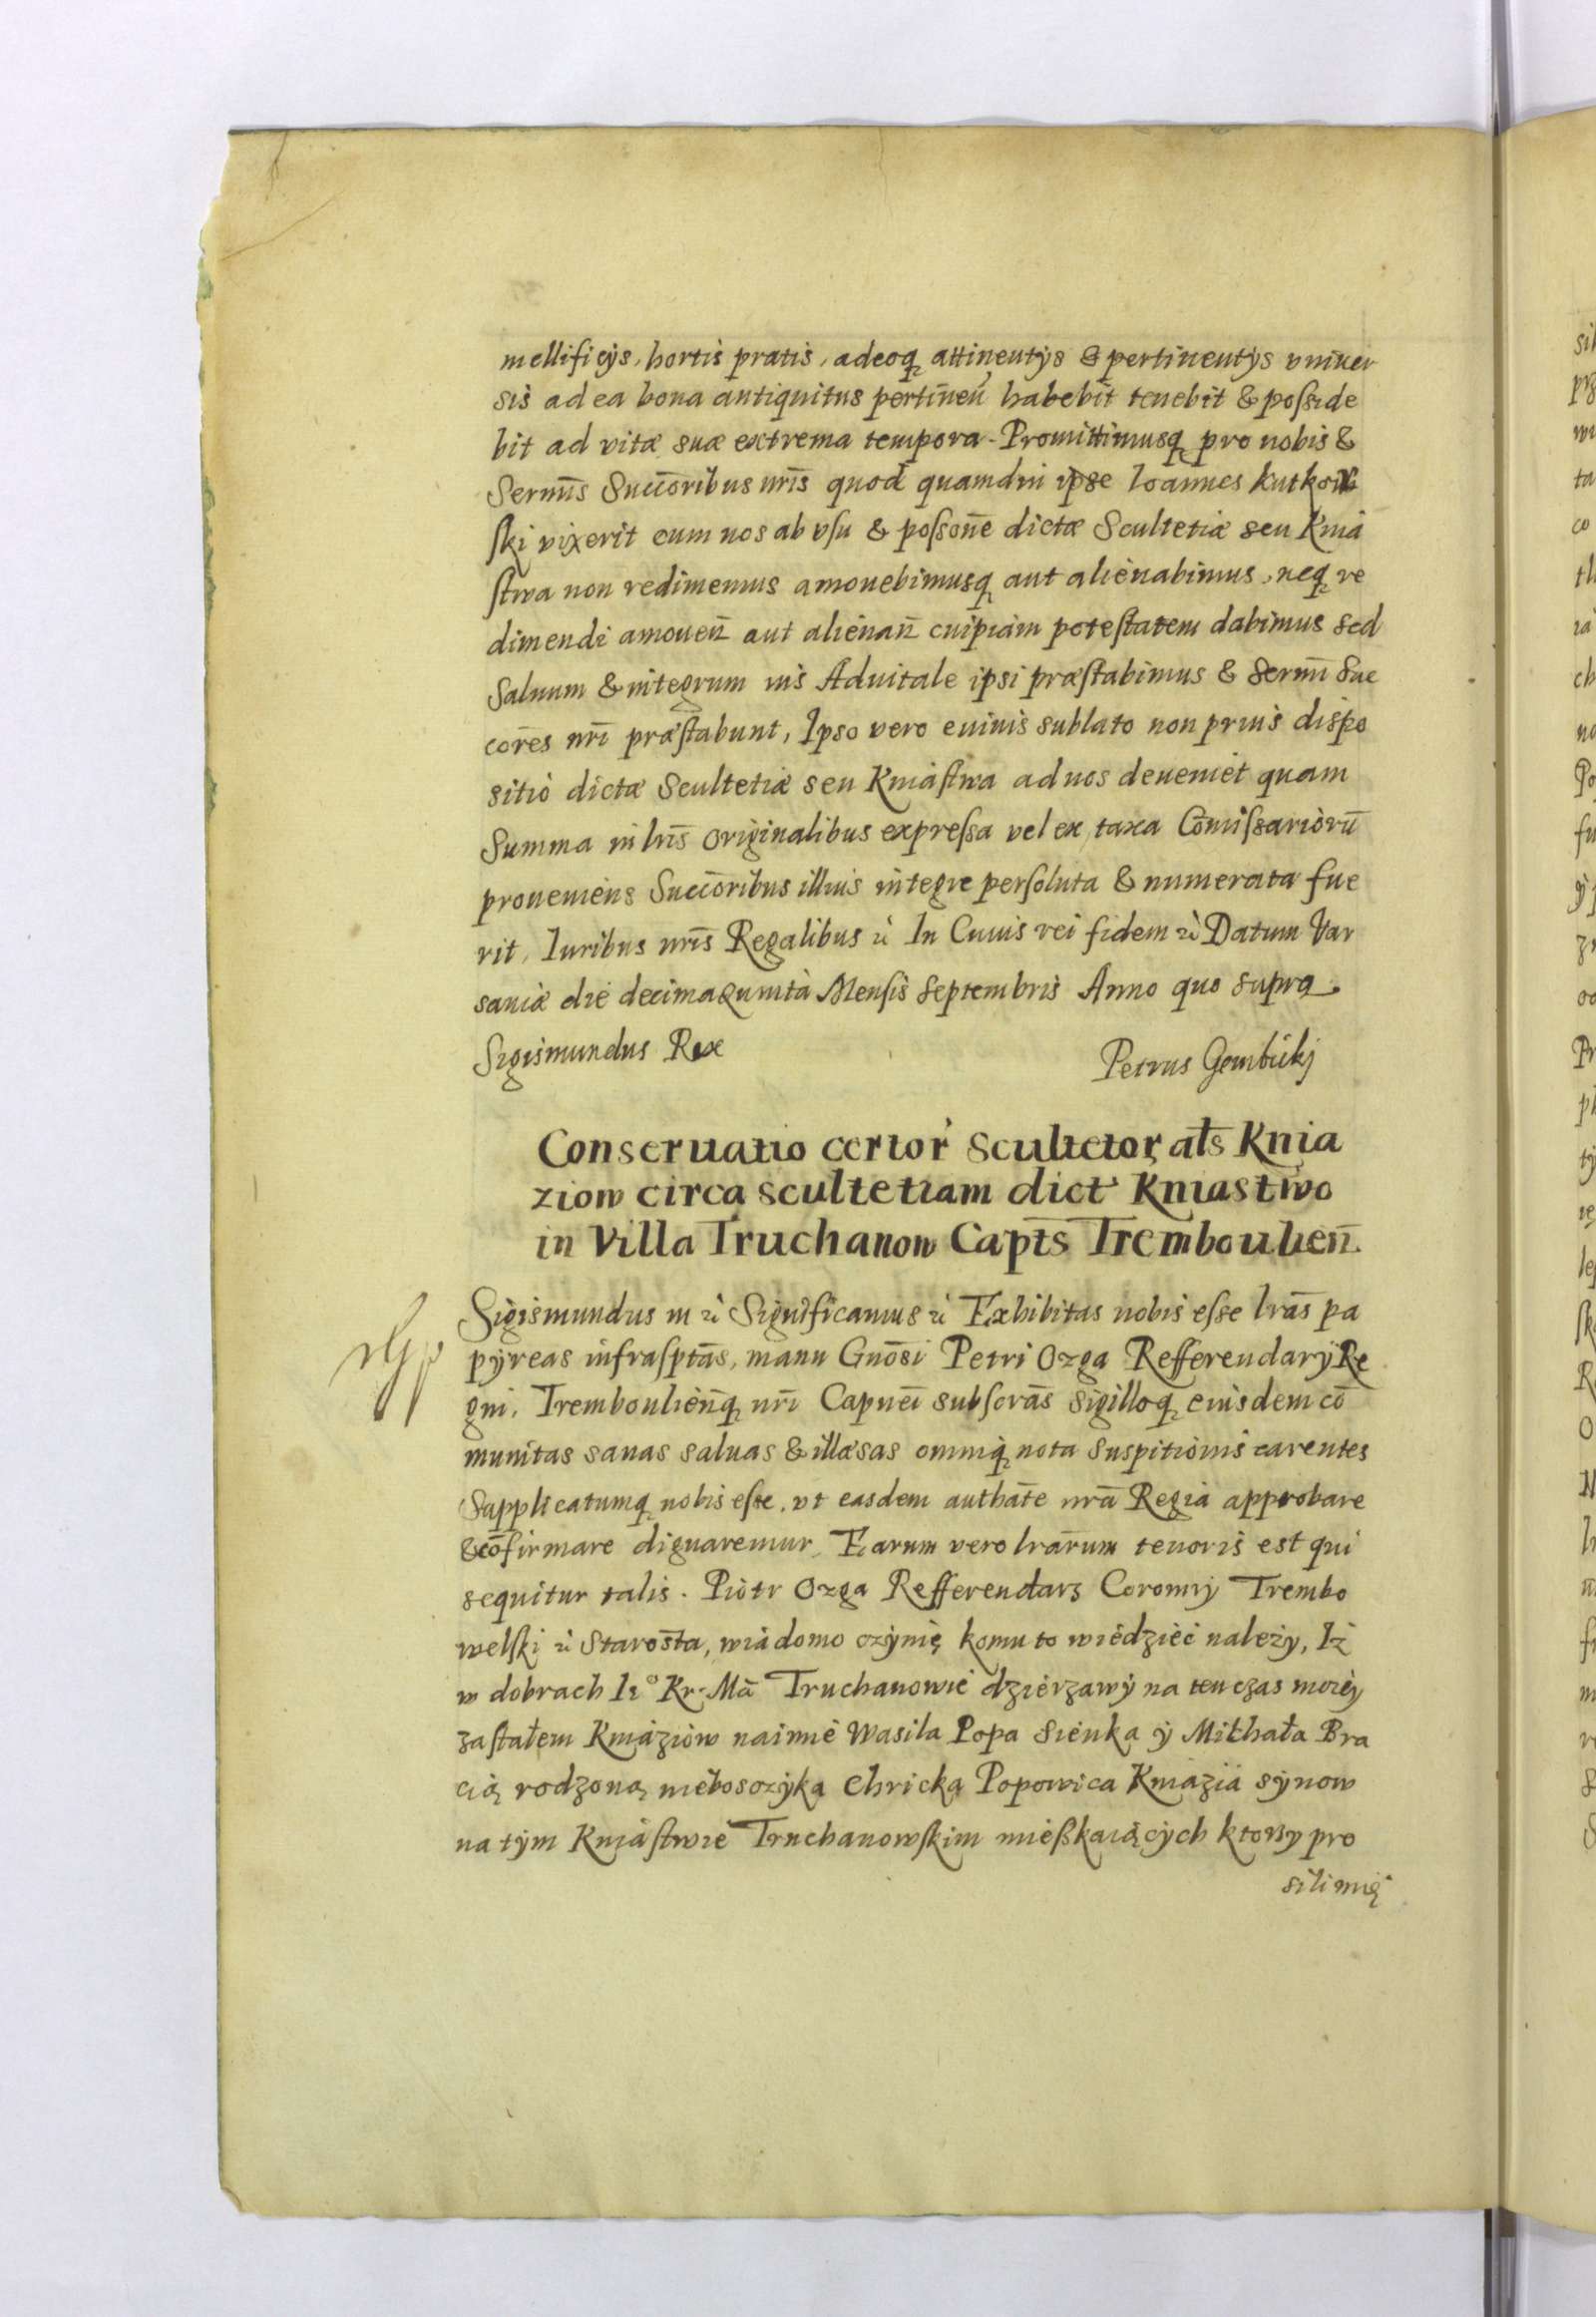 mellificÿs, hortis pratis, adeoq attinentÿs & pertinentÿs vniuer
sis ad ea bona antiquitus pertineñ habebit tenebit & posside
bit ad vitæ suæ extrema tempora. Promittimusq pro nobis &
Sermīs Succōribus nrīs quod quamdiu ipse Ioannes Kutkow
ski vixerit eum nos ab vsu & possonē dictæ Scultetiæ seu Knia
stwa non redimemus amouebimusq aut alienabimus, neq re
dimendi amoueñ aut alienañ cuipiam potestatem dabimus sed
Saluum & integrum ius Aduitale ipsi præstabimus & sermī Suc
cōres nrī præstabunt, Ipso vero euiuis sublato non prius dispo
sitio dictæ Scultetiæ seu Kniastwa ad nos deueniet quam
Summa in lrīs originalibus expressa vel ex taxa Comissariorū
proueniens Succōribus illius integre persoluta & numerata fue
rit, Iuribus nrīs Regalibus ꝛc In Cuius rei fidem ꝛc Datum Var
sauiæ die decimaquinta Mensis Septembris Anno quo supra.
Sigismundus Rex Petrus Gembicki
Conseruatio certor scultetor als Knia
ziow circa scultetiam dict Kniastwo
in Villa Truchanow Capts Tremboulieñ.
Sigismundus III ꝛc Significamus ꝛc Exhibitas nobis esse lrās pa
pÿreas infrasptās, manu Gnōsi Petri Ozga Refferendarÿ Re
gni, Trembouliēnq nrī Capnei subscrās sigilloq eiusdem cō
munitas sanas saluas & illæsas omniq nota suspitionis carentes
Sapplicatumq nobis esse, vt easdem authāte nrā Regia approbare
& cōfirmare dignaremur, Earum vero lrārum tenoris est qui
sequitur talis. Piotr Ozga Refferendarz Coronnÿ Trembo
welski ꝛc Starosta, wiadomo czÿnię komu to wiedzieć należy, Iż
w dobrach Ie° Kr. Mā Truchanowie dzierzawÿ na ten czas moiey
zastałem Kniaziow naimie Wasila Popa Sienka ÿ Michała Bra
cią rodzoną niebosczÿka Chricka Popowica Kniazia sÿnow
na tÿm Kniastwie Truchanowskim mieszkaiącÿch ktorzy pro
sili mię